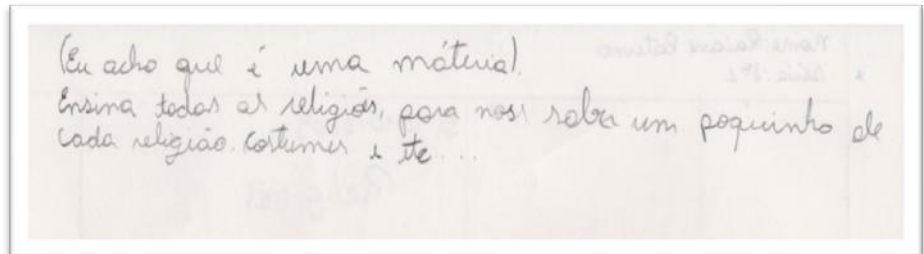 (Eu acho que é uma máteria).
Ensina todas as religiõs, para nos saber um poquinho de
cada religião. costumes e ite...